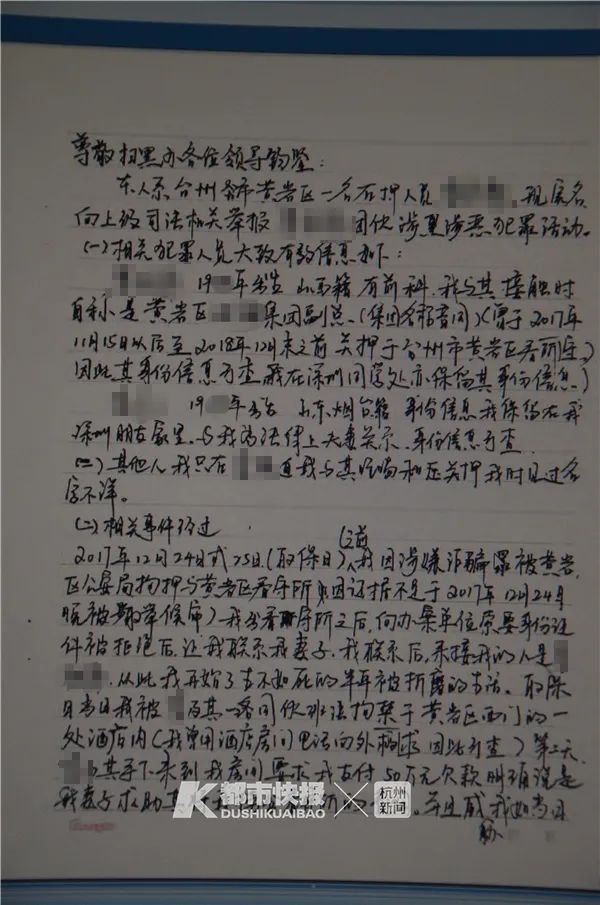 尊敬扫黑办各位领导钧鉴:
本人系台州市黄岩区一名在押人员 现实名
向上级司法相关举报 团伙涉黑涉恶犯罪活动。
(一)相关犯罪人员大致有效信息如下:
19 年出生 山西籍 有前科 我与其接触时
自称是黄岩区 集团副总。(集团名称音同)(曾于2017年
11月15日以后至2018年12月末之前关押于台州市黄岩区看所
因此其身份信息可查 我在深圳同居处亦保留其身份信息)
19 年出生 山东烟台籍 身份信息我保留在我
深圳朋友家里,与我为法律上夫妻关系,身份信息可查
(三)其他人我只在 逼我与其 和在关押我时见过名
字不详。
(二)相关事件经过
2017年12月24日或25日(取保日)之前 我因涉嫌诈骗罪被黄岩
区公安局拘押与黄岩区看守所 因证据不足于2017年12月24日
晚被取 候审)我出看守所之后,向办案单位索要身份证
件被拒绝后,让我联系我妻子,我联系后,来接我的人是
从此我开始了生不如死的半年被折磨的生活。取保
日当日我被 及其一名同伙非法拘禁于黄岩区西门的一
处酒店内(我曾用酒店房间电话向外 求 因此可查)第二天
其手下来到我房间要求我支付50万元欠款 明确说是
我妻子求助 并且威 我如当日
都市快报
DUSHIKUAIBAO
杭州
新闻